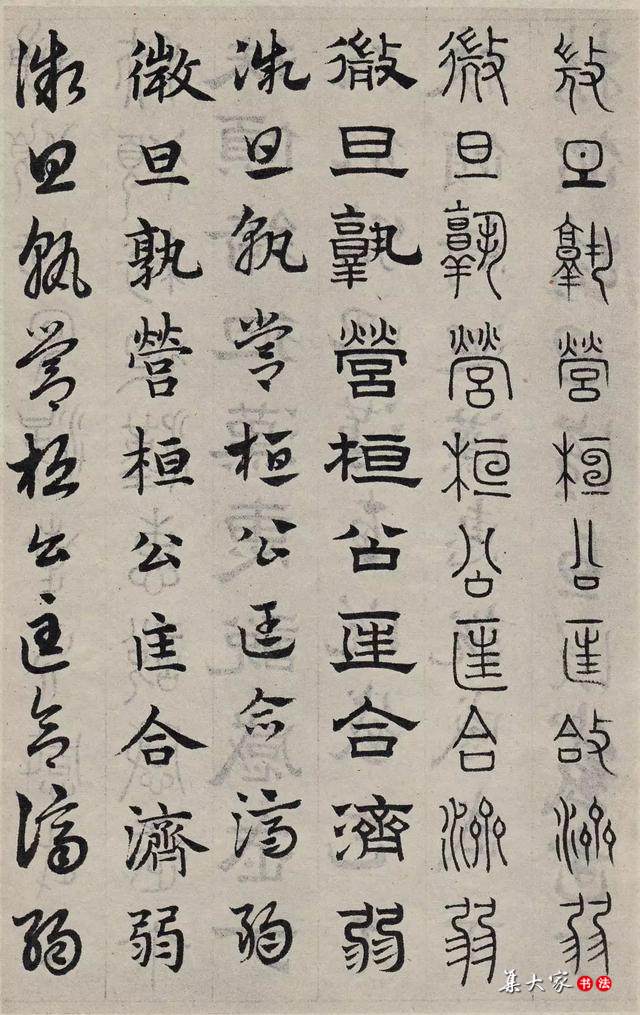 微旦孰營桓公匡合濟弱
微旦孰營桓公匡合濟弱
微旦孰營桓公匡合濟弱
微旦孰營桓公匡合濟弱
微旦孰營桓公匡合濟弱
微旦孰營桓公匡合濟弱
集大家書法